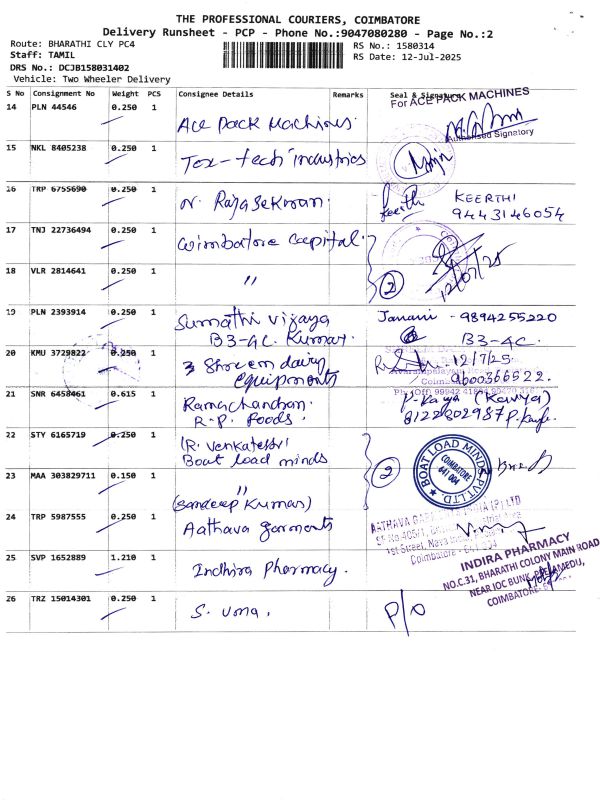 THE PROFESSIONAL COURIERS, COIMBATORE
Delivery Runsheet - PCP - Phone No.:9047080280 - Page No.:2
Route: BHARATHI CLY PC4
RS No.: 1580314
Staff: TAMIL
RS Date: 12-Jul-2025
DRS No.: DCJB158031402
Vehicle: Two Wheeler Delivery
S No Consignment No Weight PCS Consignee Details Remarks Seal & Signature
For ACE PACK MACHINES
14 PLN 44546 0.250 1 Ace Pack Machines
Authorised Signatory
15 NKL 8405238 0.250 1 Tex-tech industries
16 TRP 6755690 0.250 1 N. Rajasekaran. KEERTHI
Keerth 9443146054
17 TNJ 22736494 0.250 1 Coimbatore Capital.
18 VLR 2814641 0.250 1 " 2 12/07/25
19 PLN 2393914 0.250 1 Sumathi Vijaya Janani - 9894255220
B3-4C. Kumar. B3-4C
20 KMU 3729822 0.250 1 Shreem dairy 12/7/25.
Equipments 9600366522.
21 SNR 6458461 0.615 1 Ramachandran. P. Kavya (Kavya)
R.P. Foods. 8122802987
22 STY 6165719 0.250 1 (R. Venkatesh)
Boat load minds
BOAT LOAD MINDS PVT LTD.
COIMBATORE
641 004
23 MAA 303829711 0.150 1 " 2
(Sandeep Kumar)
24 TRP 5987555 0.250 1 Aathava Garments
1st Street,
Coimbatore
25 SVP 1652889 1.210 1 Indhira Pharmacy.
INDIRA PHARMACY
NO.C.31, BHARATHI COLONY MAIN ROAD
NEAR IOC BUNK, PEELAMEDU,
COIMBATORE
26 TRZ 15014301 0.250 1 S. Uma. P/O